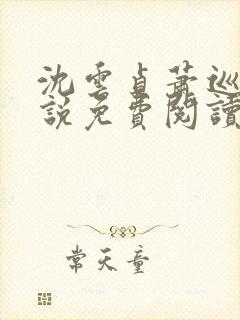 沈雲貞蕭巡
說免費閱讀
常天童